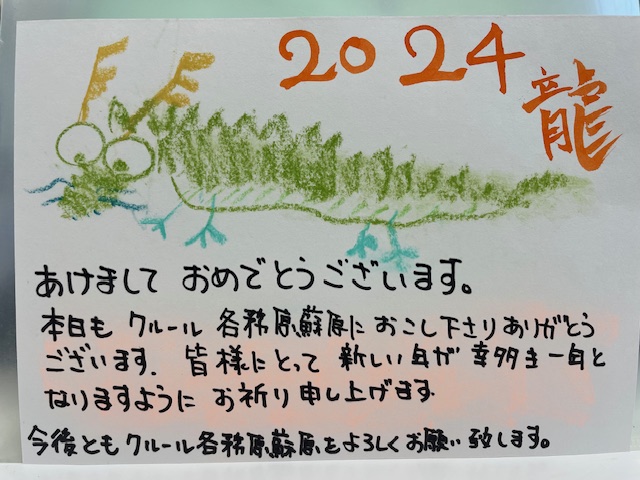 2024
龍
あけまして おめでとうございます。
本日も クルール 各務原蘇原に おこし下さり ありがとう
ございます. 皆様にとって 新しい年が 幸多き一年と
なりますように お祈り申し上げます
今後とも クルール各務原蘇原をよろしくお願い致します。